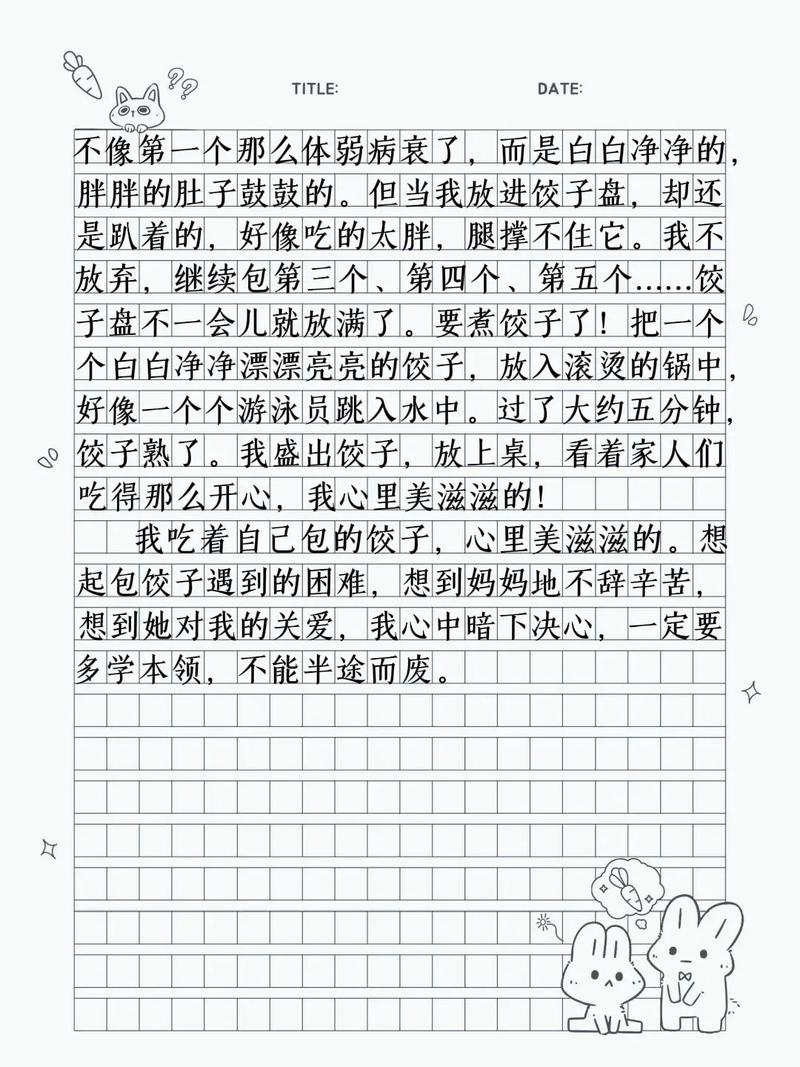 TITLE:
DATE:
不像第一个那么体弱病衰了，而是白白净净的，
胖胖的肚子鼓鼓的。但当我放进饺子盘，却还
是趴着的，好像吃的太胖，腿撑不住它。我不
放弃，继续包第三个、第四个、第五个……饺
子盘不一会儿就放满了。要煮饺子了！把一个
个白白净净漂漂亮亮的饺子，放入滚烫的锅中，
好像一个个游泳员跳入水中。过了大约五分钟，
饺子熟了。我盛出饺子，放上桌，看着家人们
吃得那么开心，我心里美滋滋的！
我吃着自己包的饺子，心里美滋滋的。想
起包饺子遇到的困难，想到妈妈地不辞辛苦，
想到她对我的关爱，我心中暗下决心，一定要
多学本领，不能半途而废。